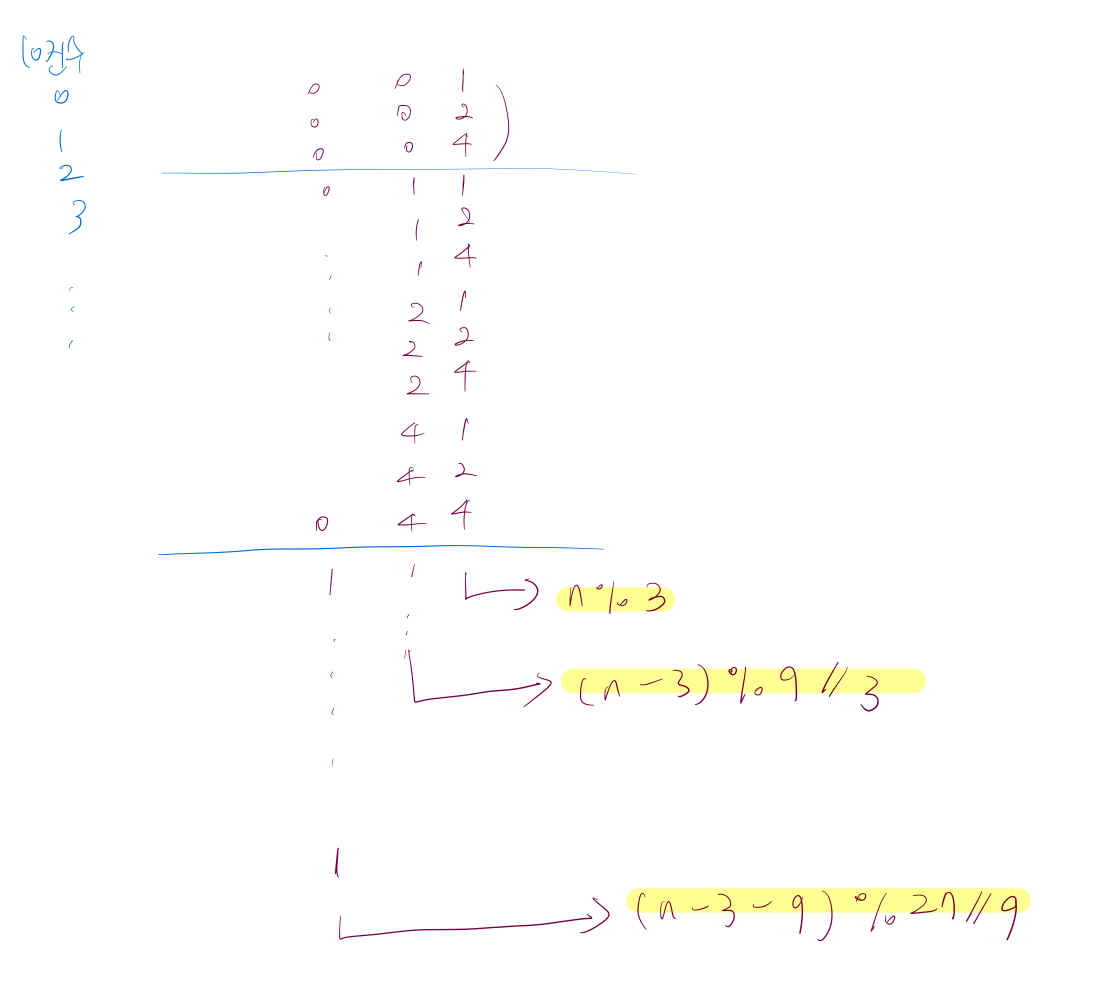 10진수
0
1
2
3
0 0 1
0 0 2
0 0 4
0 1 1
1 2
1 4
2 1
2 2
2 4
4 1
4 2
0 4 4
1 1
n % 3
(n - 3) % 9 // 3
1
(n - 3 - 9) % 27 // 9